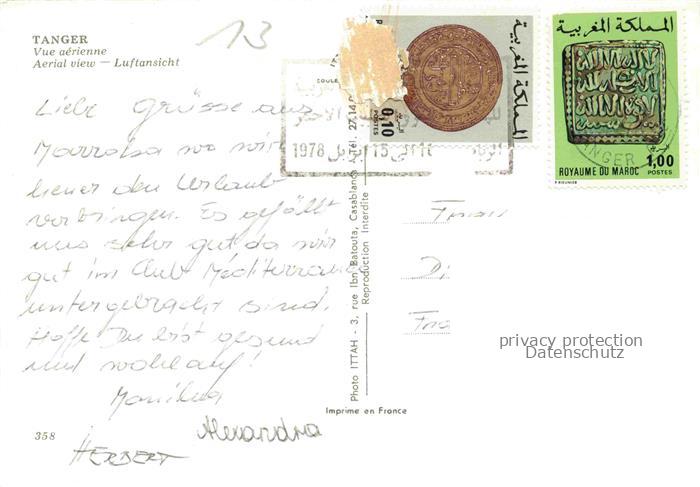 TANGER
Vue aérienne
Aerial view — Luftansicht
13
Liebe Grüsse aus
wo wir
heuer den Urlaub
verbringen. Es gefällt
uns sehr gut da wir
gut im Club Méditerranée
untergebracht sind.
Hoffe Du bist gesund
und wohlauf!
Alexandra
HERBERT
358
Photo ITTAH - 3, rue Ibn Batouta, Casablanca - Tél. 27.14
Reproduction Interdite
Imprimé en France
المملكة المغربية
0,10
POSTES
1978 أبريل 15
المملكة المغربية
1,00
ROYAUME DU MAROC POSTES
TANGER
Frau
Di
privacy protection
Datenschutz